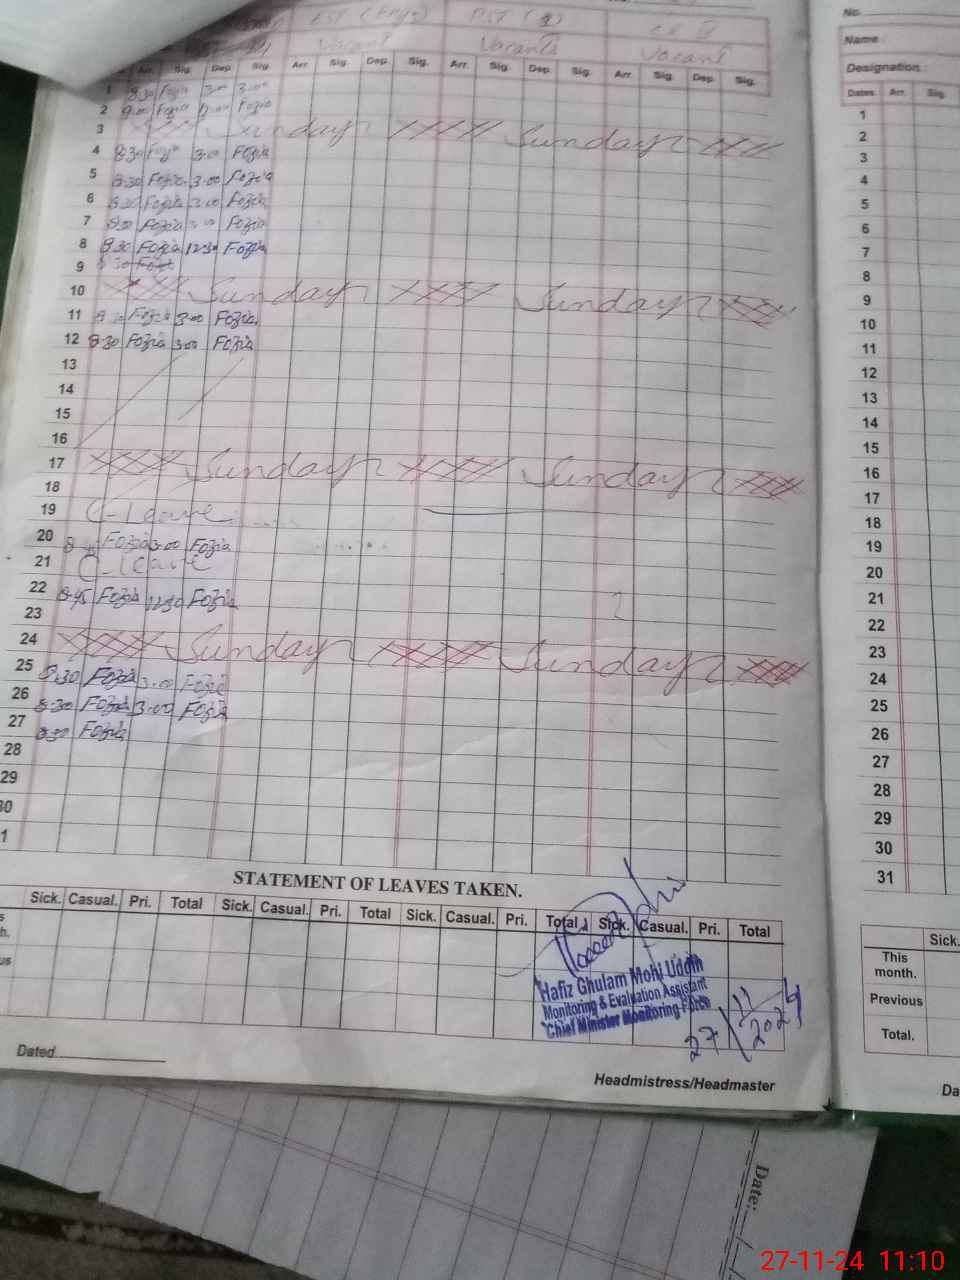 No.
EST (Eng)
PST (g)
CL IV
Name :
Vacant
Vacant
Vacant
Designation :
Arr. Sig. Dep. Sig. Arr. Sig. Dep. Sig. Arr. Sig. Dep. Sig. Arr. Sig. Dep. Sig.
Dates Arr. Sig.
1 8:30 Fozia 3:00 3:00
2 9:00 Fozia Fozia
3 Sunday Sunday
4 8:30 Fozia 3:00 Fozia
5 8:30 Fozia 3:00 Fozia
6 8:30 Fozia 3:00 Fozia
7 8:30 Fozia 3:00 Fozia
8 8:30 Fozia 12:30 Fozia
9 8:30 Fozia
10 Sunday Sunday
11 Fozia 3:00 Fozia
12 8:30 Fozia 3:00 Fozia
13
14
15
16
17 Sunday Sunday
18
19 C-Leave
20 Fozia 3:00 Fozia
21 C-leave
22 8:45 Fozia 12:30 Fozia
23
24 Sunday Sunday
25 8:30 Fozia 3:00 Fozia
26 8:30 Fozia 3:00 Fozia
27 8:30 Fozia
28
29
30
1
1
2
3
4
5
6
7
8
9
10
11
12
13
14
15
16
17
18
19
20
21
22
23
24
25
26
27
28
29
30
31
STATEMENT OF LEAVES TAKEN.
Sick. Casual. Pri. Total Sick. Casual. Pri. Total Sick. Casual. Pri. Total Sick. Casual. Pri. Total
Hafiz Ghulam Mohi Uddin
Monitoring & Evaluation Assistant
Chief Minister Monitoring Force
27/11/2024
Dated
Headmistress/Headmaster
Sick.
This month.
Previous
Total.
Da
Date:
27-11-24 11:10